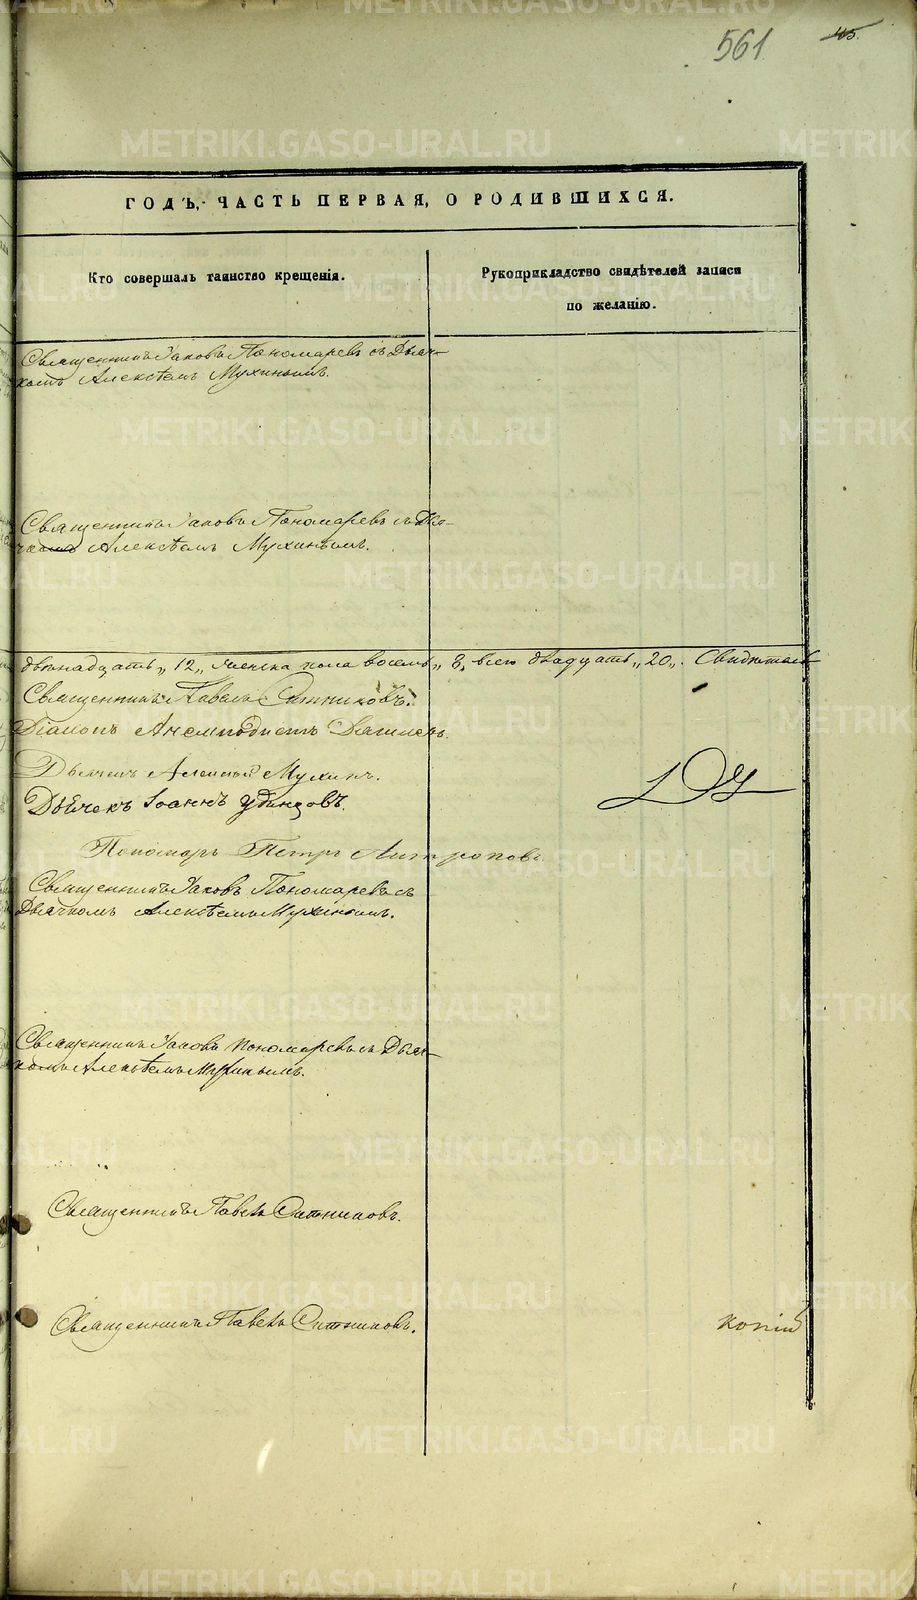 561 45.
ГОДЪ, ЧАСТЬ ПЕРВАЯ, О РОДИВШИХСЯ.
Кто совершалъ таинство крещенія.
Рукоприкладство свидѣтелей записи
по желанію.
Священникъ Іаковъ Пономаревъ съ Дьяч-
комъ Алексѣемъ Мухинымъ.
Священникъ Іаковъ Пономаревъ съ Дья-
чкомъ Алексѣемъ Мухинымъ.
двѣнадцать „12„ женска пола восемь „8„ всего двадцать „20„. Свидѣтели
Священникъ Павелъ Ситниковъ.
Діаконъ Анемподистъ
Дьячекъ Алексѣй Мухинъ.
Дьячекъ Іоаннъ Удинцовъ
Пономарь Петръ Антроповъ
Священникъ Іаковъ Пономаревъ съ
Дьячкомъ Алексѣемъ Мухинымъ.
Священникъ Іаковъ Пономаревъ съ Дьяч-
комъ Алексѣемъ Мухинымъ.
Священникъ Павелъ Ситниковъ.
Священникъ Павелъ Ситниковъ.
копій
METRIKI.GASO-URAL.RU